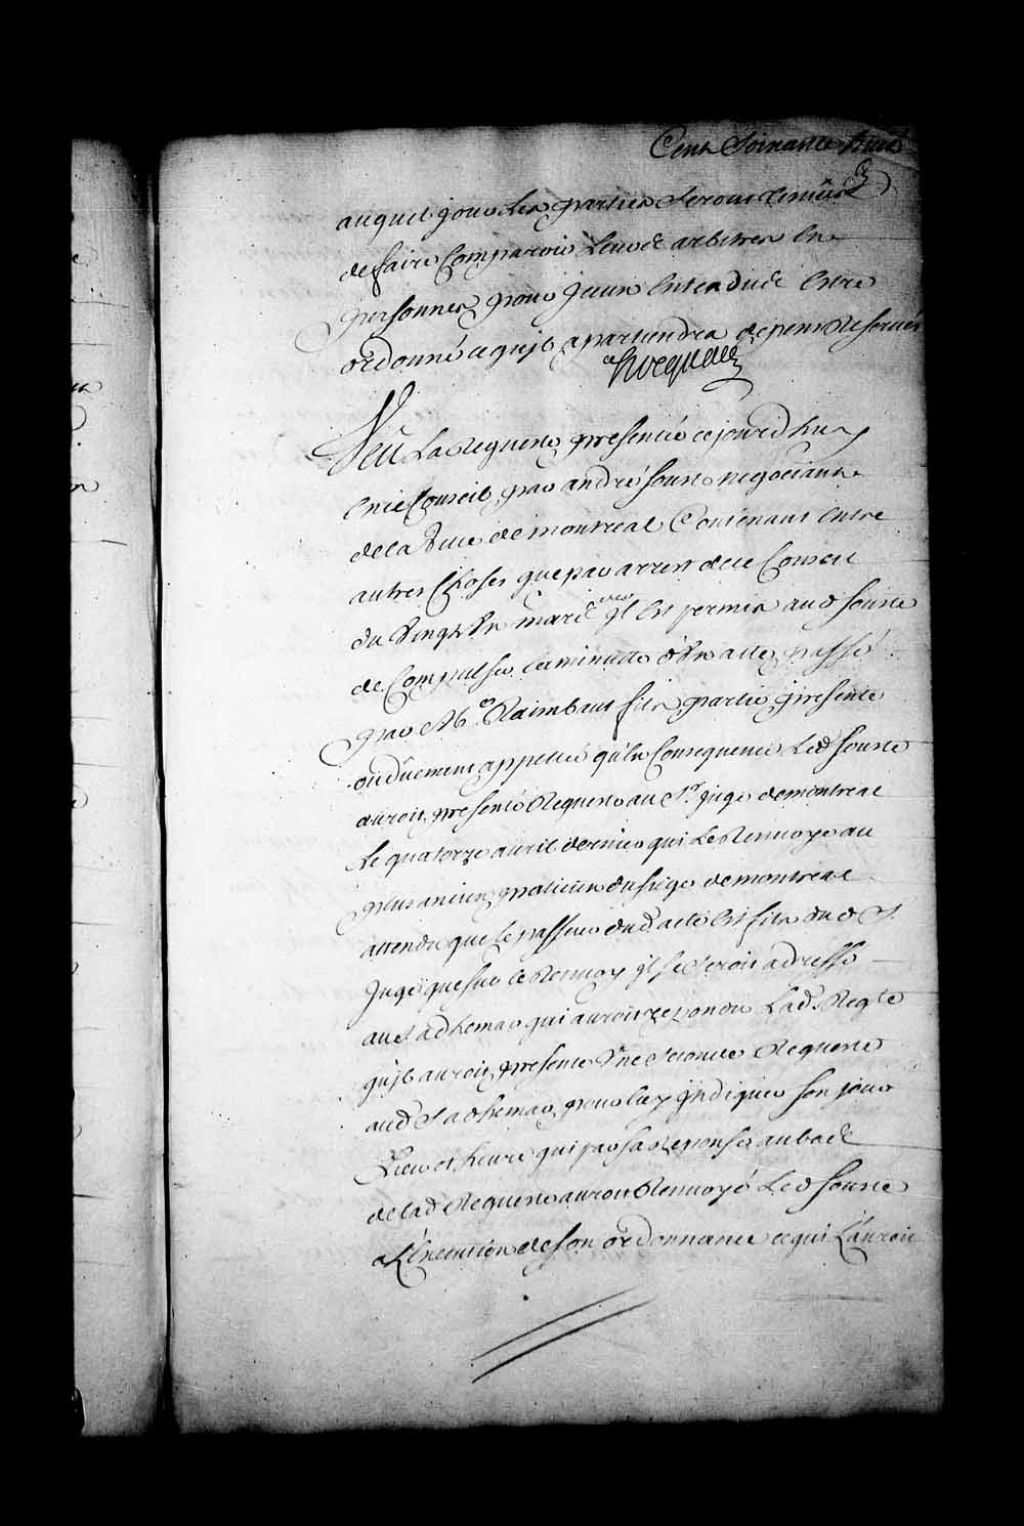 Cent Soixante huit
auquel jour les parties seront tenües
de faire Comparoir leurs arbitres en
personnes pour yceux entendus estre
ordonné ce qu'jl apartiendra depens Reservés
hocquart
Veu La Requeste presentée ce jourd'huy
en ce Conseil par andré souste negociant
de la Ville de montreal Contenant entre
autres Choses que par arrest de ce Conseil
du Vingt Un mars der jl est permis aud souste
de Compulser la minutte d'Un acte passé
par Me Raimbaut fils partie presente
ou düement appellée qu'en Consequence Led souste
auroit presenté Requeste au Sr juge de montreal
Le quatorze avril dernier qui Le Renvoye au
plus ancien praticien du siege de montreal
attendu que le passeur dud acte est fils dud S.
Juge que sur ce Renvoy jl se seroit adressé
au S adhemar qui auroit repondu Lad. Reqte
qu'jl auroit presenté Une seconde Requeste
aud S adhemar pour luy jndiquer son jour
Lieu et heure qui par sa reponse au bas de
de lad Requeste auroit Renvoyé Led souste
a L'Execution de son ordonnance ce qui L'auroit